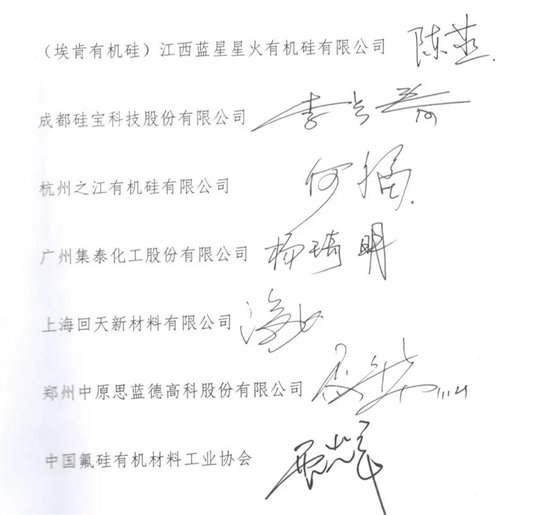 （埃肯有机硅）江西蓝星星火有机硅有限公司 陈
成都硅宝科技股份有限公司 李
杭州之江有机硅有限公司 何
广州集泰化工股份有限公司 杨琦明
上海回天新材料有限公司
郑州中原思蓝德高科股份有限公司
中国氟硅有机材料工业协会